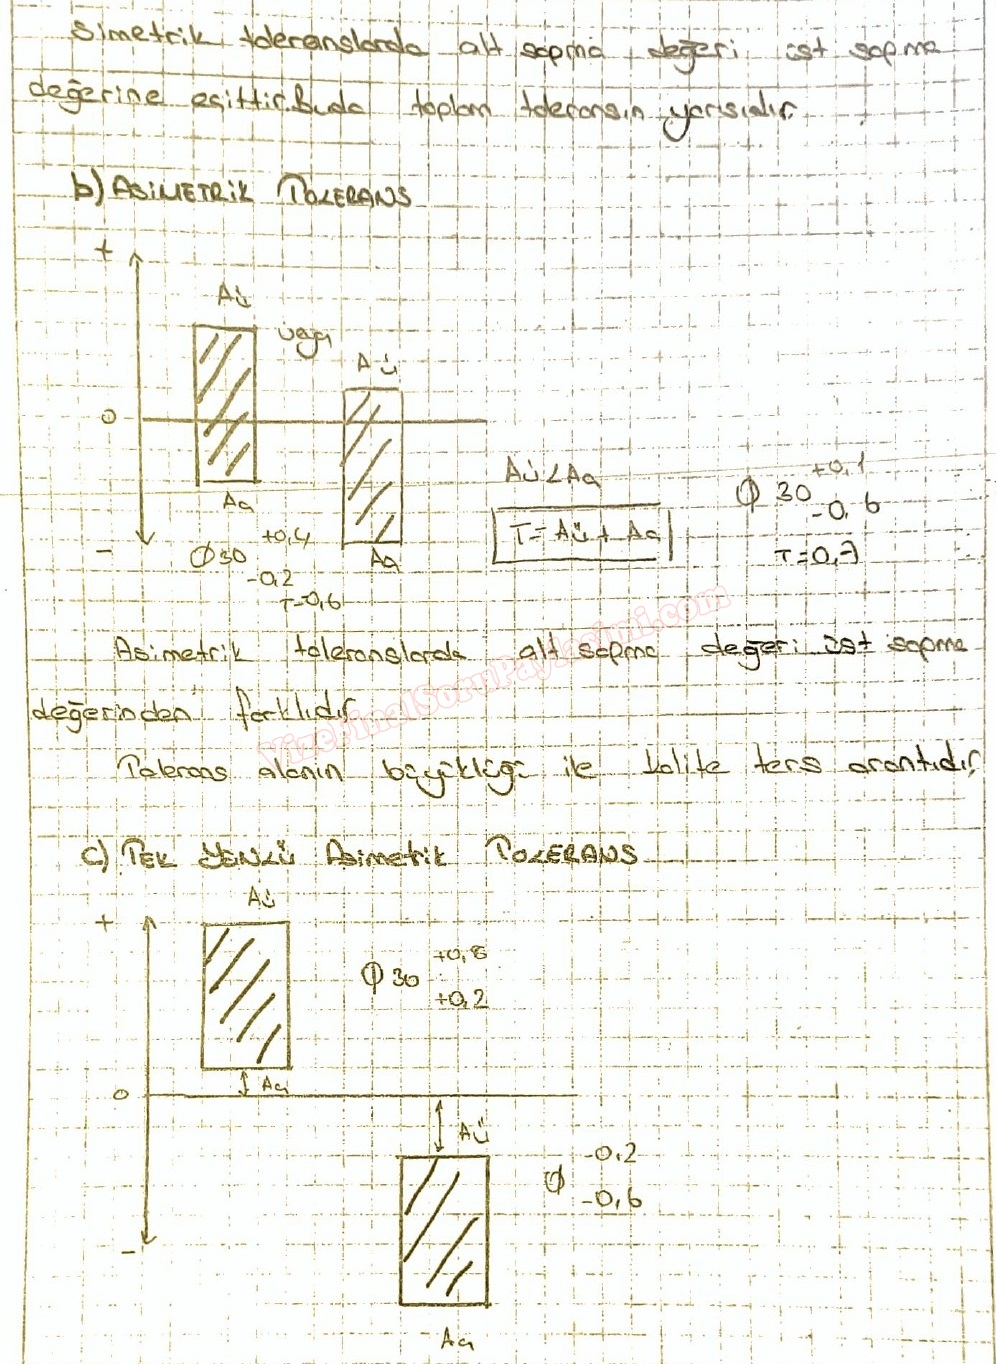 Simetrik toleranslarda alt sapma değeri üst sapma
değerine eşittir. Buda toplam toleransın yarısıdır.
b) ASİMETRİK TOLERANS
+
Aü
veya
Aü
0
Aü<Aa
+0,1
Φ 30
-0,6
Aa
T = Aü + Aa
T=0,7
-
+0,4
Φ30
Aa
-0,2
T=0,6
Asimetrik toleranslarda alt sapma değeri üst sapma
değerinden farklıdır
Tolerans alanın büyüklüğü ile kalite ters orantıdır
VizeFinalSoruPaylasimi.com
c) TEK YÖNLÜ Asimetrik TOLERANS
Aü
+
+0,8
Φ 30
+0,2
Aa
0
Aü
-0,2
Φ
-0,6
-
Aa